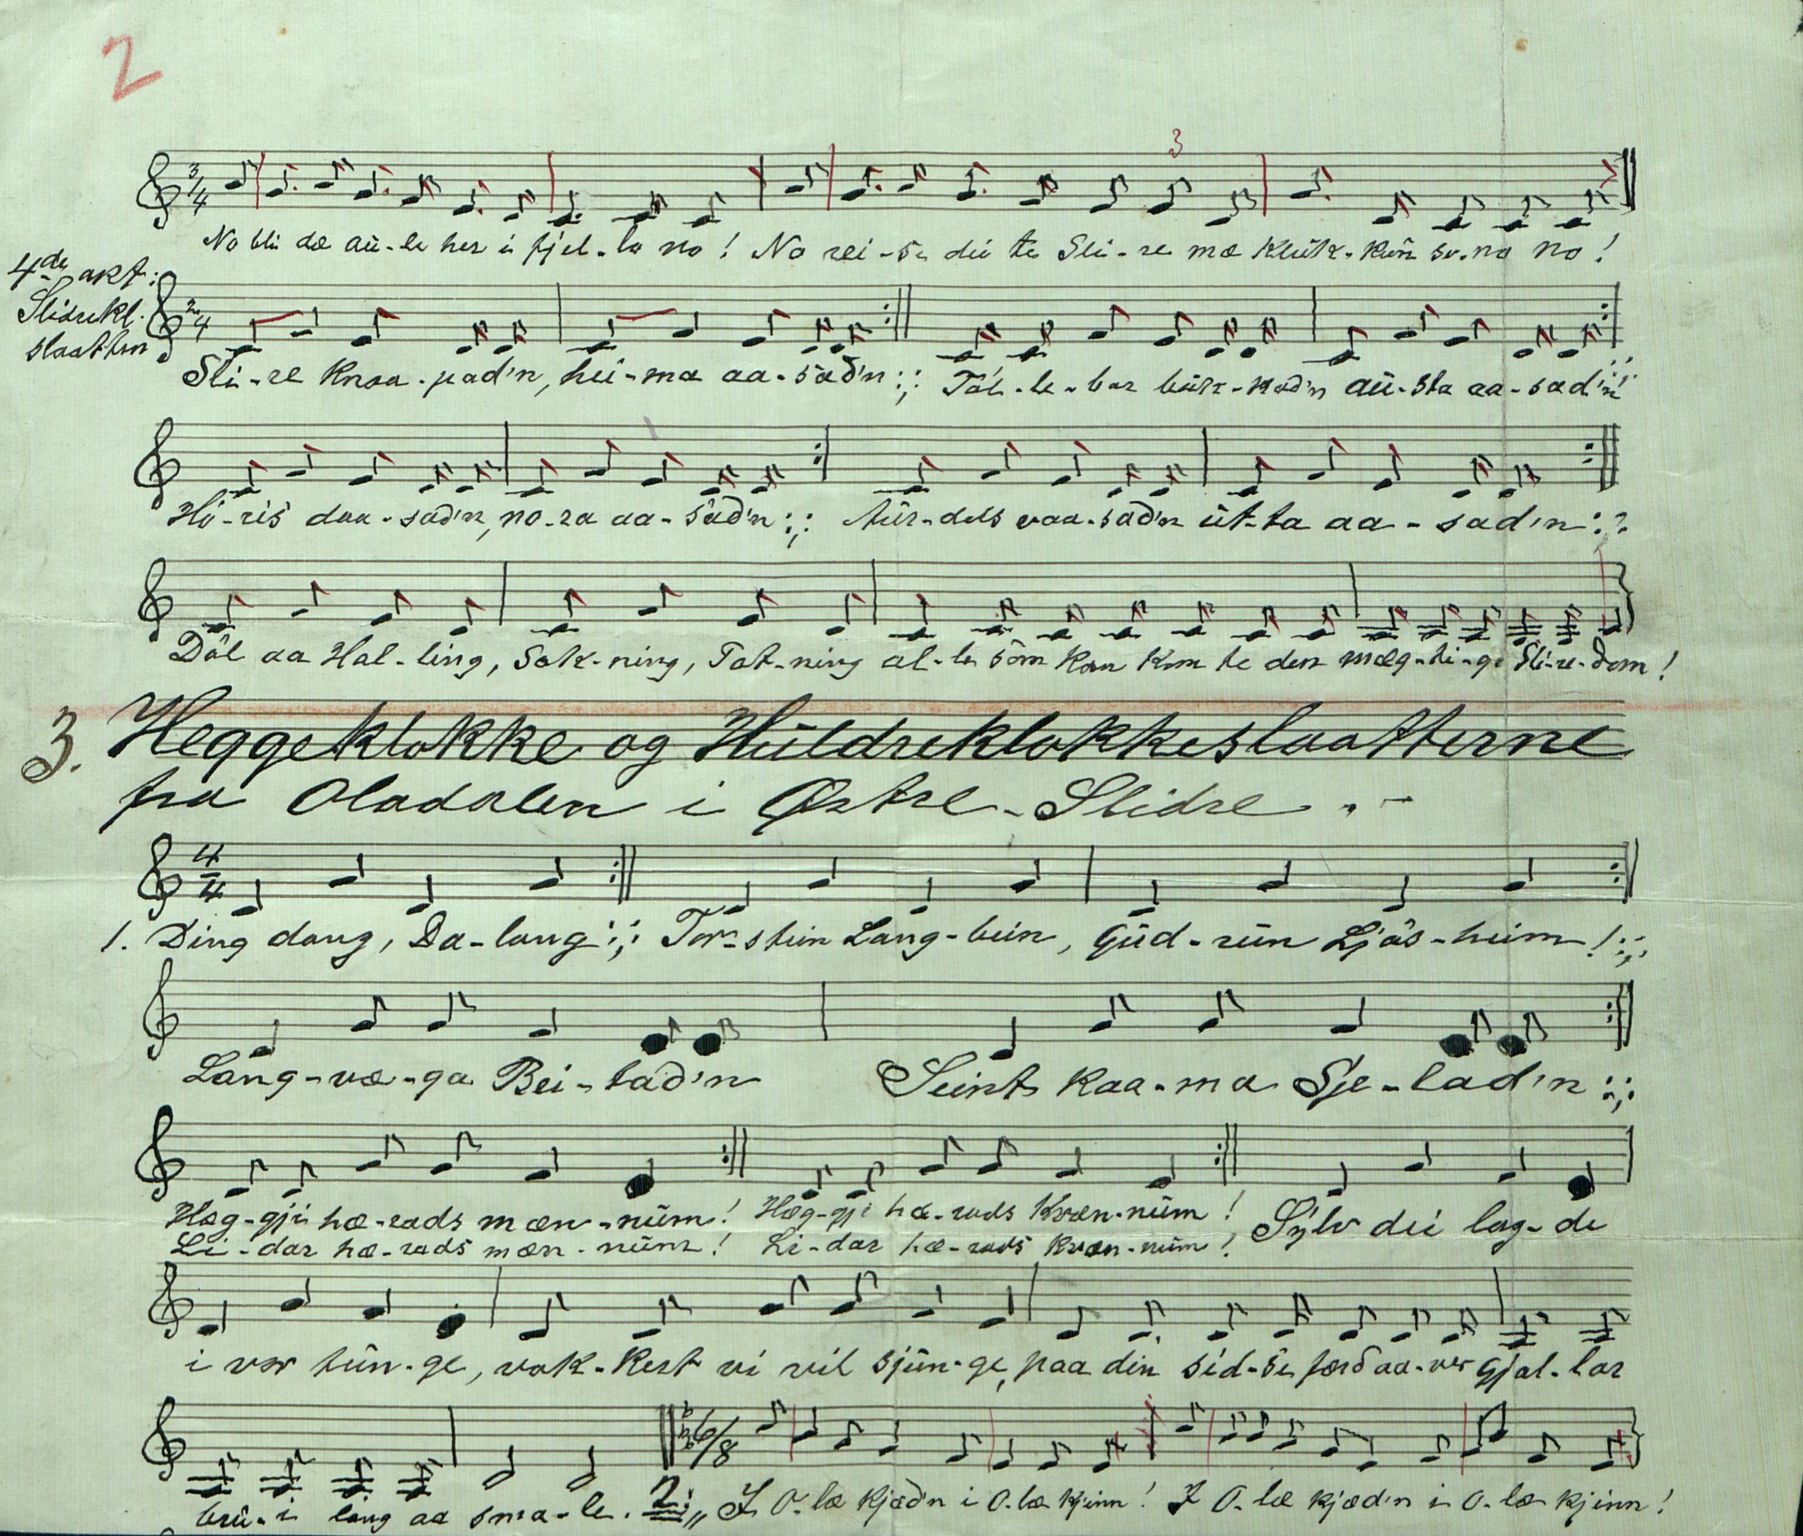 2
3
No bli dæ aū-le her i fjel-lo no! No rei-se dei te Sli-re mæ Klūk-kūn so-no no!
4de akt:
Slidrekl.
slaatten
Sli-re Knaa-pad'n, hei-ma aa-sad'n :;: Tol-le-bar būk-kad'n aū-sta aa-sad'n
Hō-ris daa-sad'n, no-ra aa-sad'n :;: Aūr-dels vaa-sad'n ūt-ta aa-sad'n :;:
Dōl aa Hal-ling, Sok-ning, Tot-ning al-le sōm kan kom te den mæg-ti-ge Sli-re-dom!
3. Heggeklokke og Hūldreklokkeslaatterne
fra Oladalen i Østre-Slidre
4/4
1. Ding dang, Da-lang :;: Tor-stein Lang-bein, Gūd-rūn Ljōs-heim! :;:
Lang-væ-ga Bei-tad'n Seint kaa-ma Sje-lad'n :;:
Hæg-gji hæ-rads mæn-nūm! Hæg-gji hæ-rads Kvæn-nūm! Sylv dei lag-de
Li-dar hæ-rads mæn-nūm! Li-dar hæ-rads kvæn-nūm!
i vor tūn-ge, vak-kert vi vil sjūn-ge, paa din sid-ste færd aa-ver Gjal-lar
6/8
brū-i lang aa sma-le. 2. I O-læ kjæd'n i O-læ kjinn! I O-læ kjæd'n i O-læ kjinn!